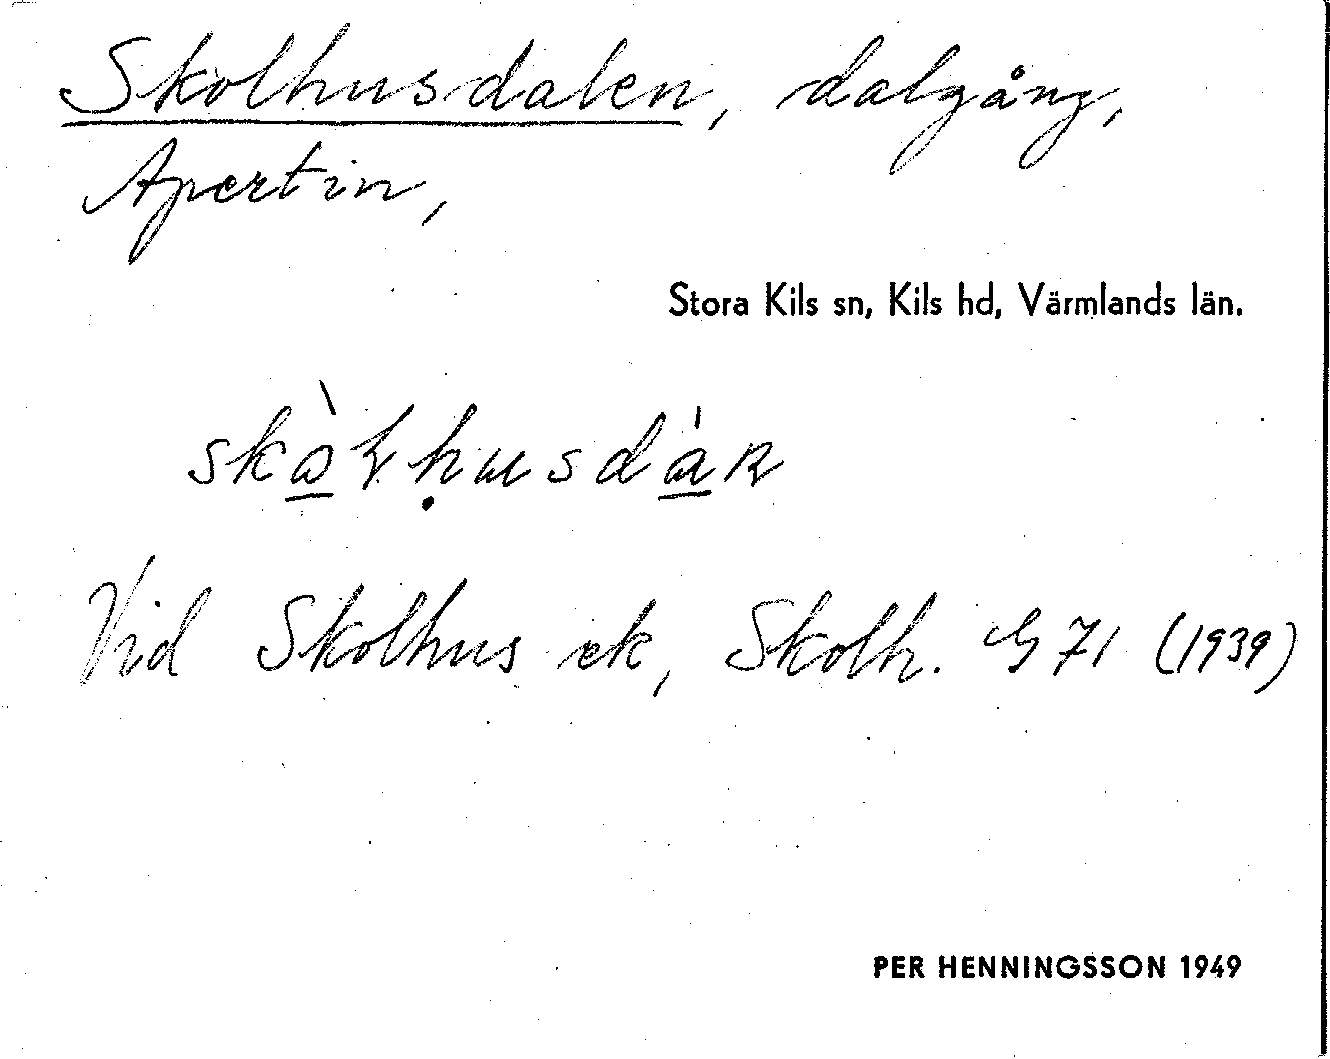 Skolhusdalen, dalgång,
Apertin,
Stora Kils sn, Kils hd, Värmlands län.
Vid Skolhus ek, Skolh. G 71 (1939)
PER HENNINGSSON 1949